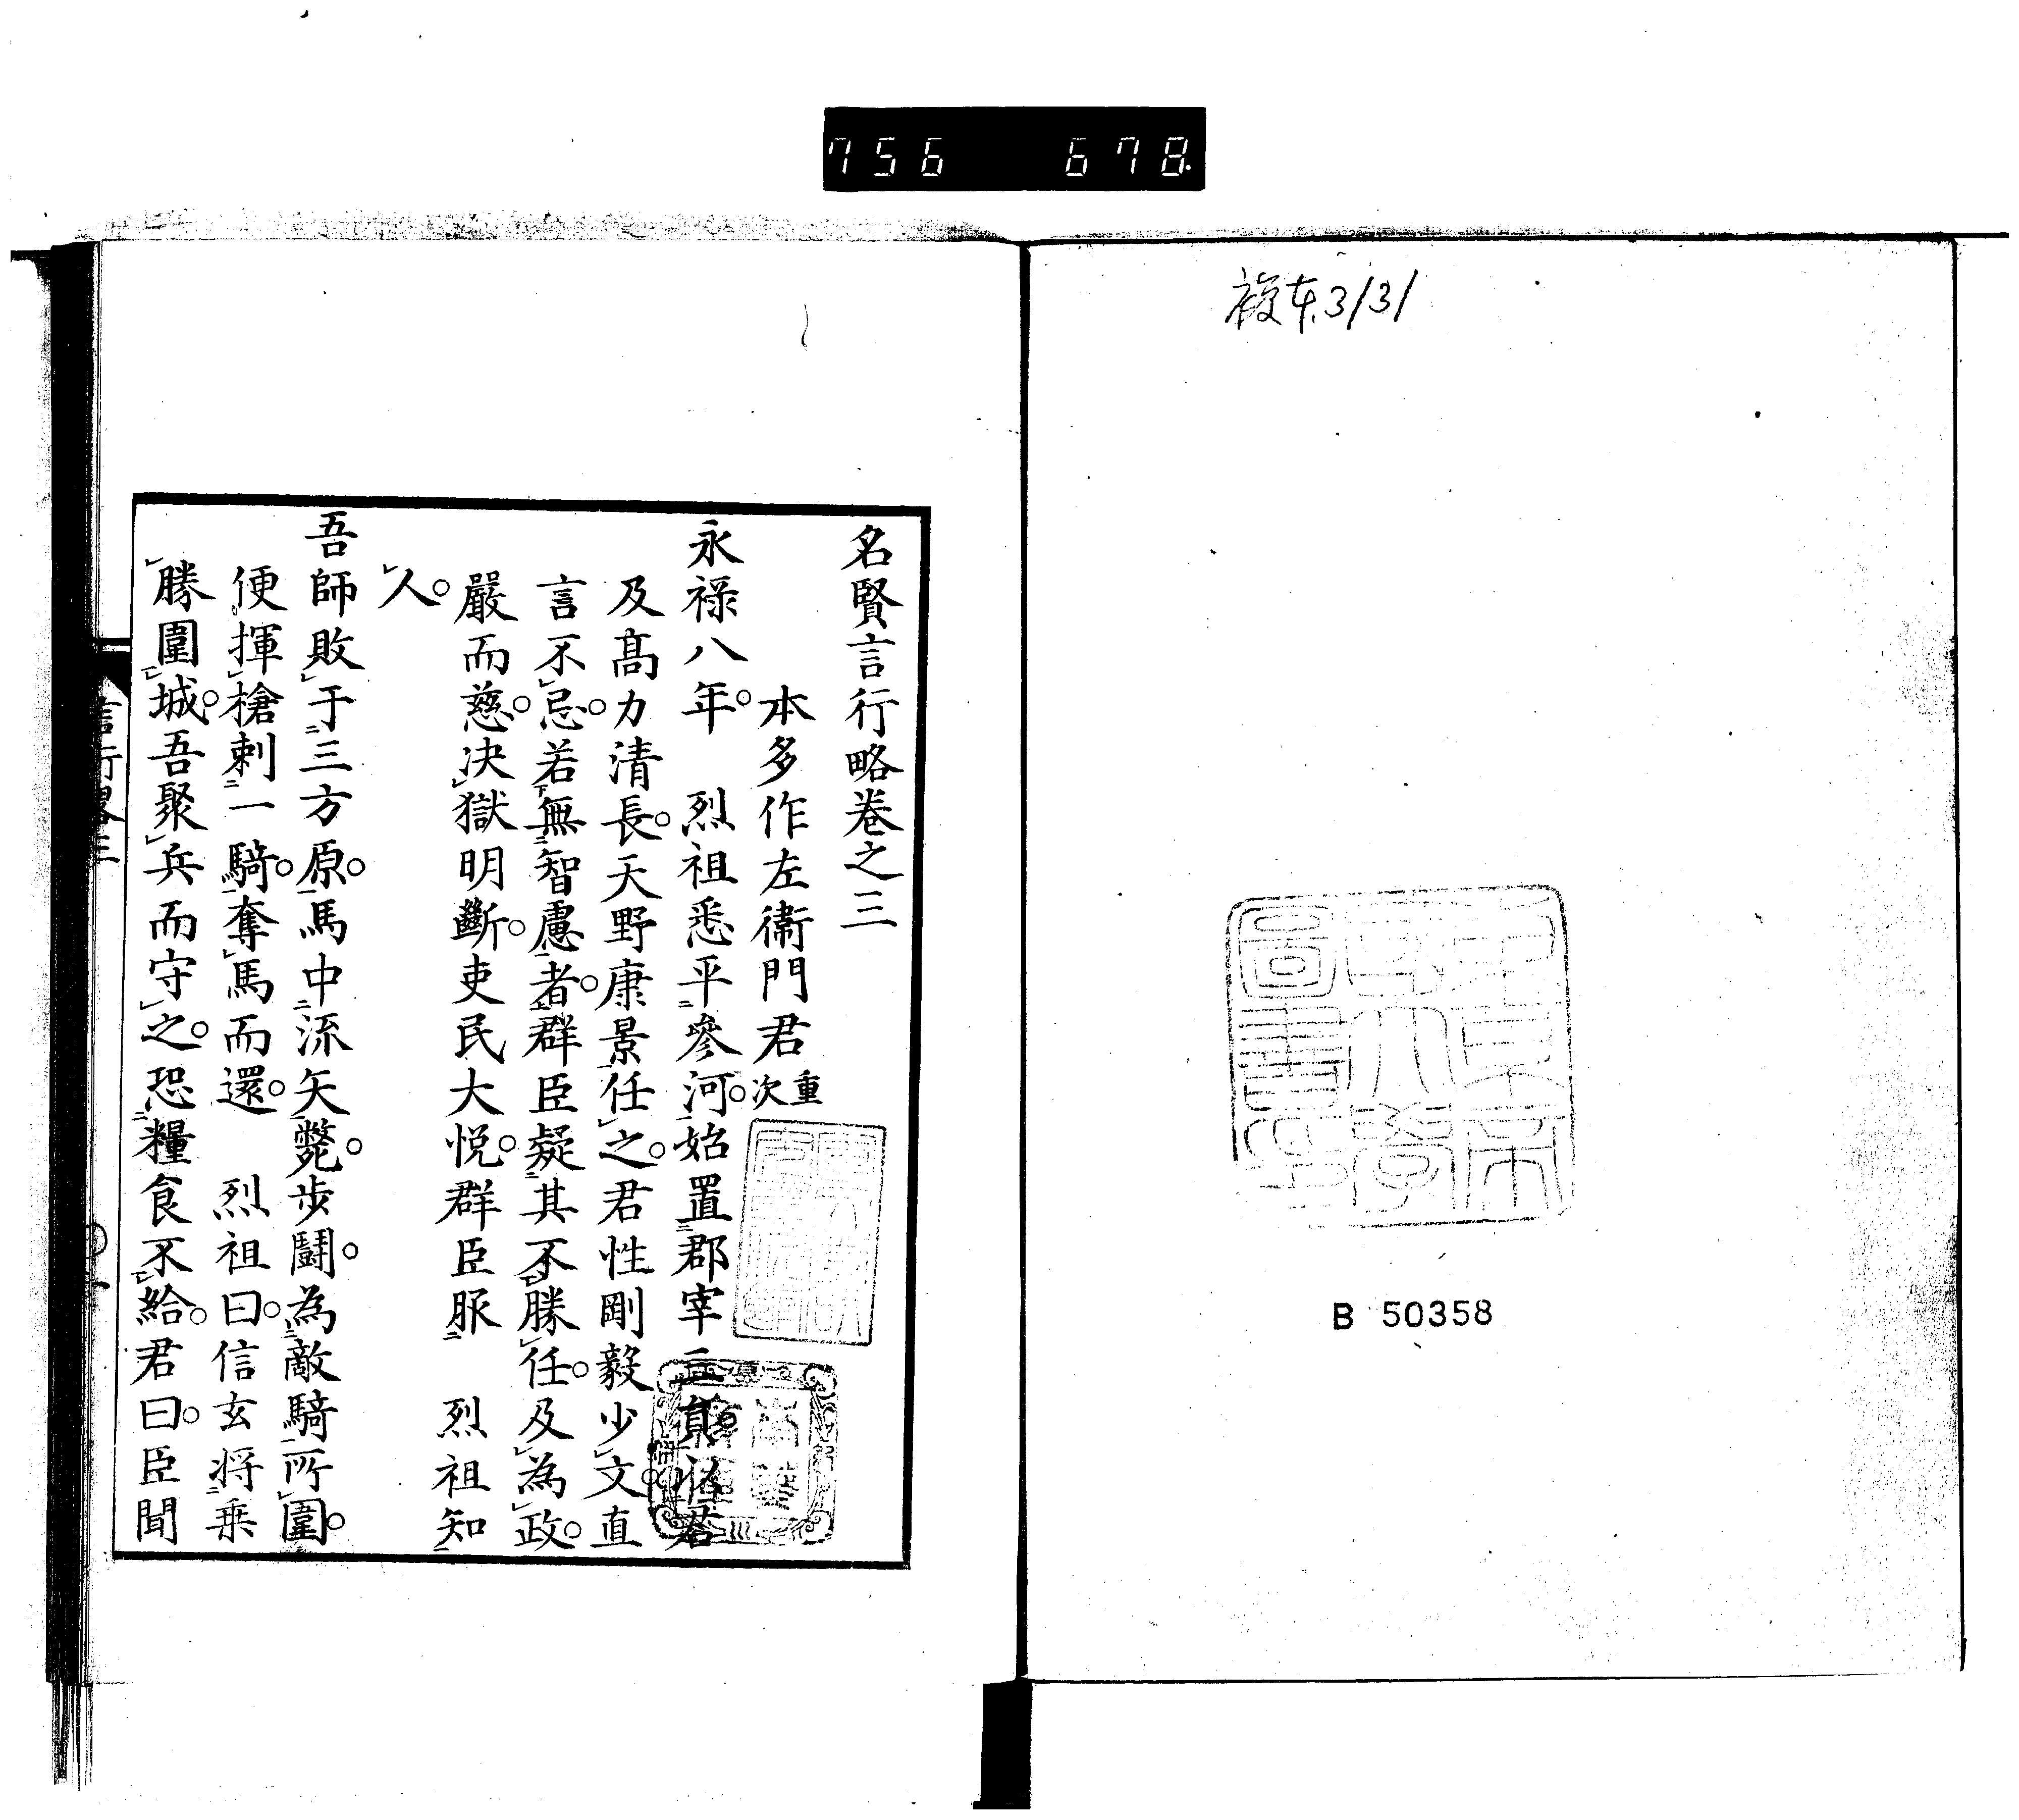 756 678
複本3/31
B 50358
名賢言行略卷之三
本多作左衞門君重次
永祿八年。 烈祖悉平參河。始置郡宰三員以君
及髙力清長。天野康景任之。君性剛毅少文。直
言不忌。若無智慮者。群臣疑其不勝任。及為政。
嚴而慈。决獄明斷。吏民大悅。群臣服 烈祖知
人。
吾師敗于三方原。馬中流矢斃。步鬪。為敵騎所圍。
便揮槍刺一騎。奪馬而還。 烈祖曰。信玄將乗
勝圍城。吾聚兵而守之。恐糧食不給。君曰。臣聞